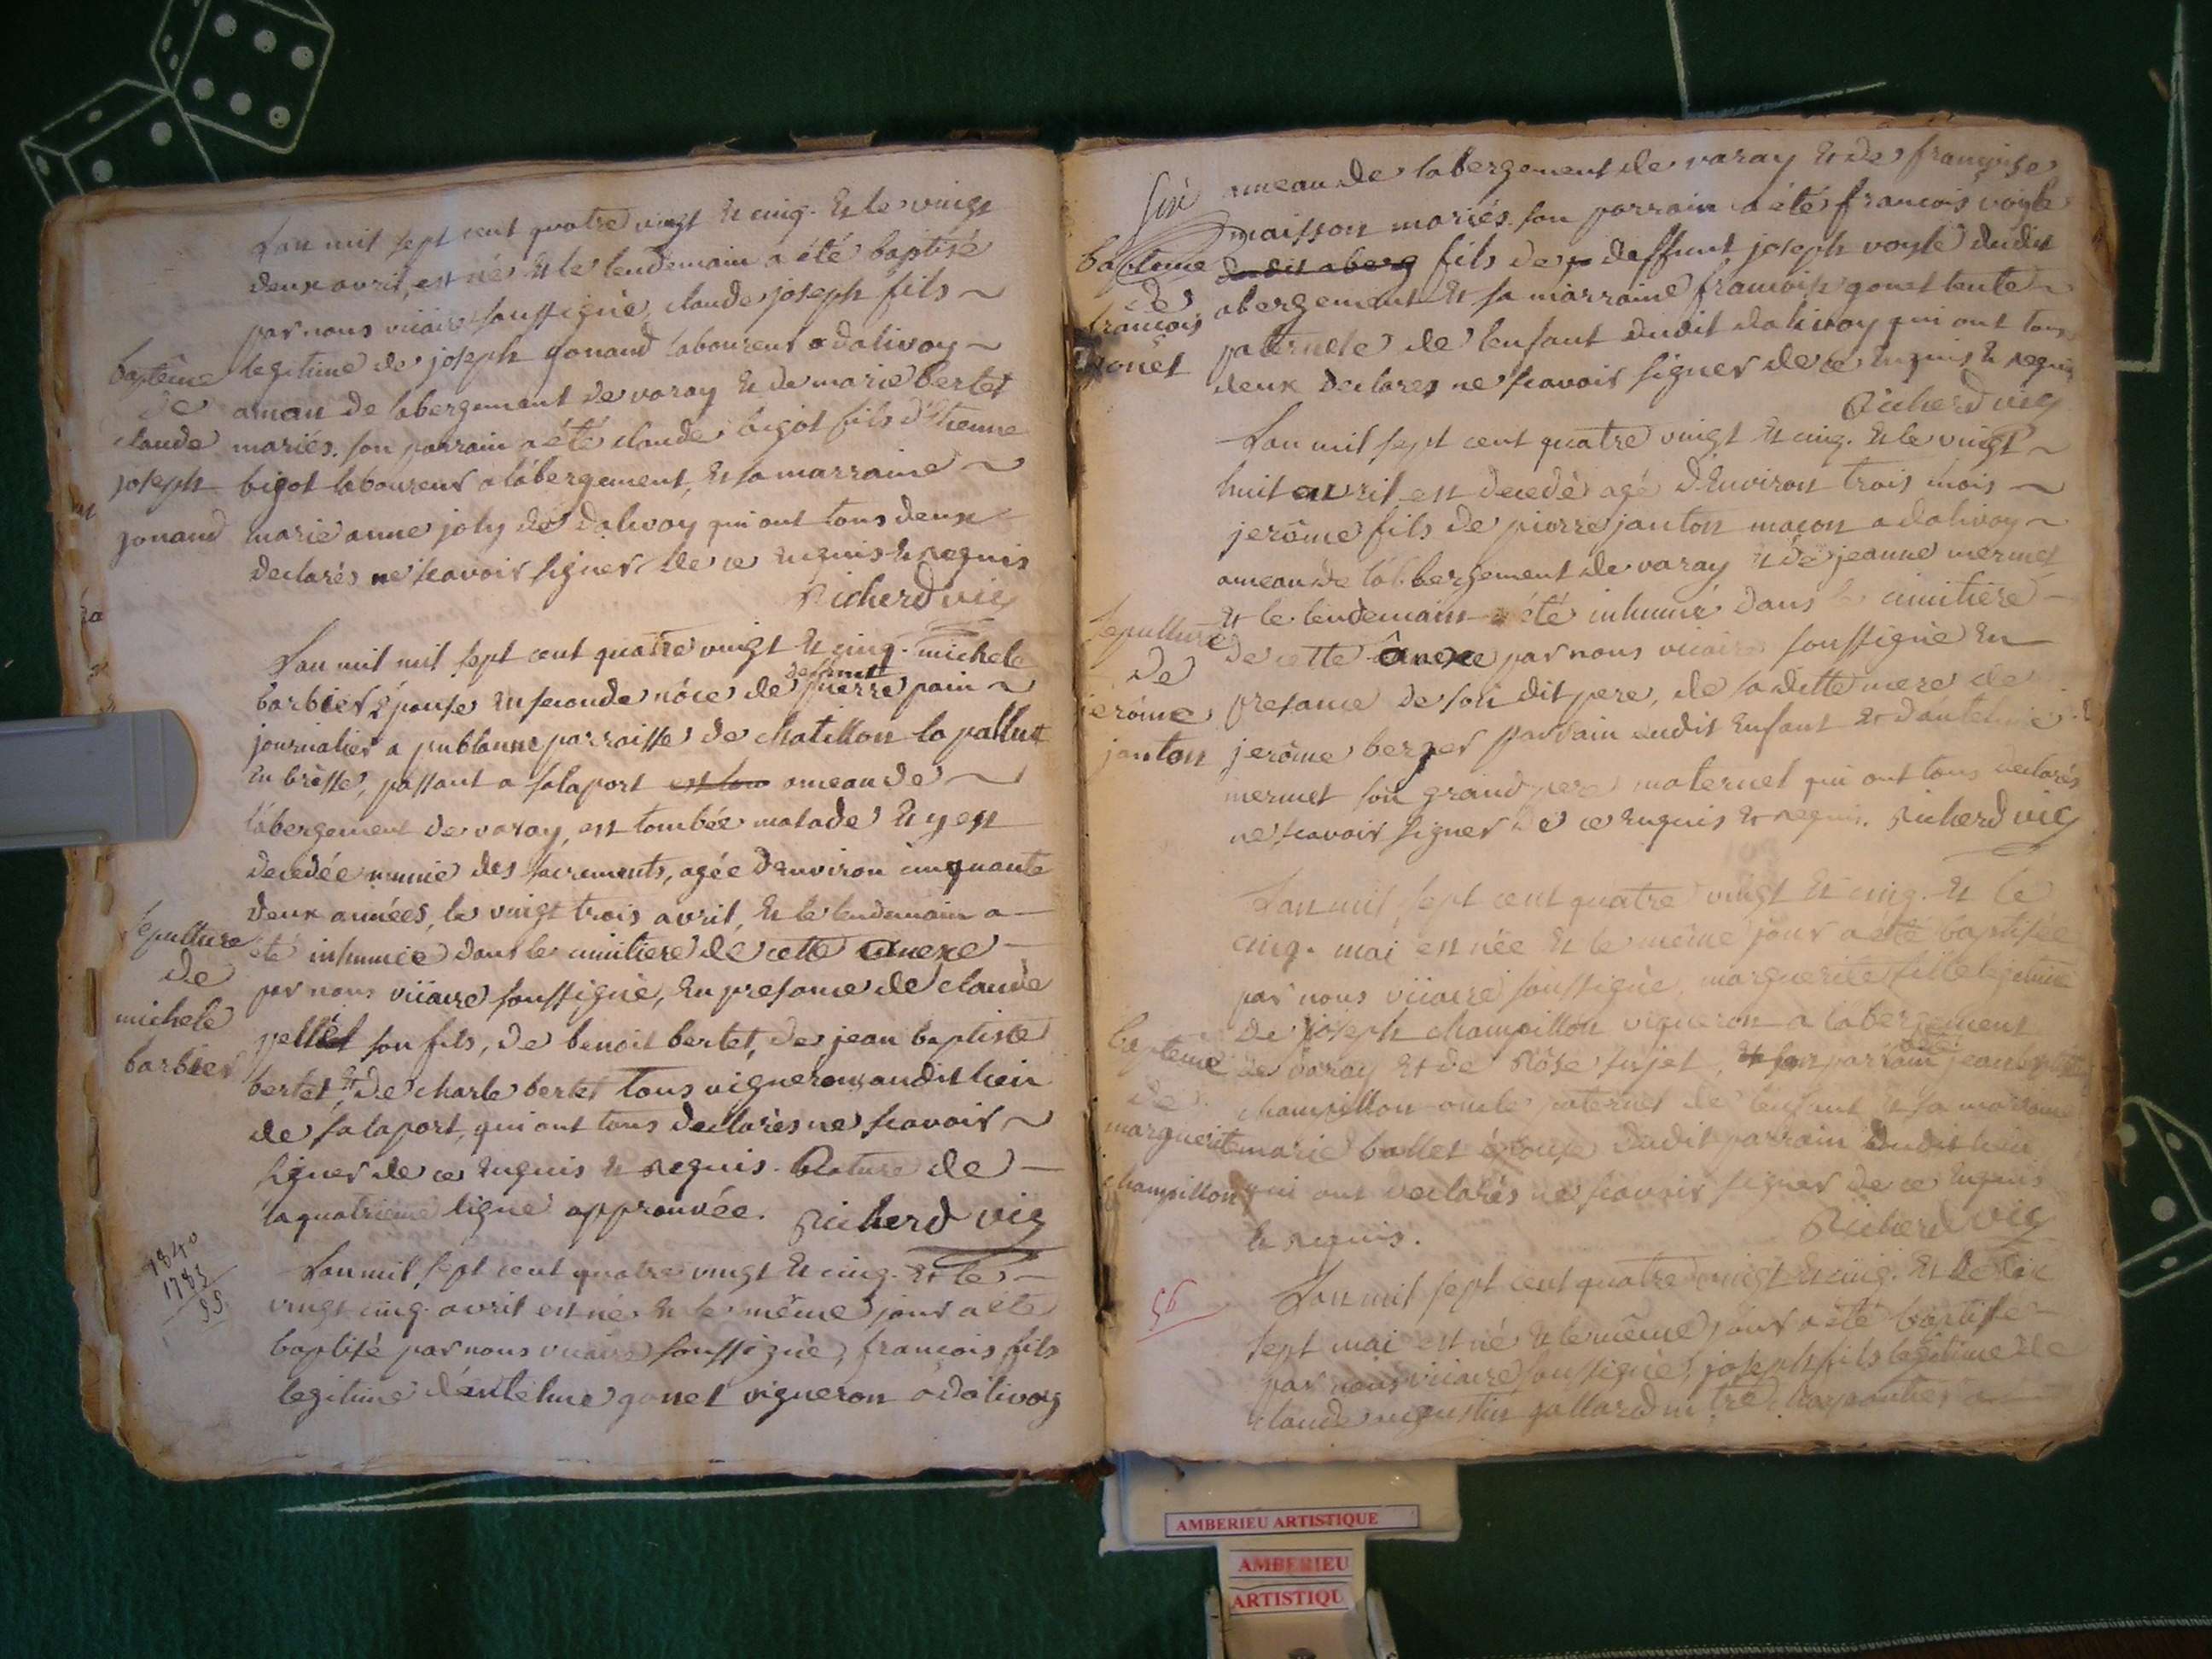 Lan mil sept cent quatre vingt et cinq. et le vingt
deux avril, est né et le lendemain a été baptisé
par nous vicaire soussigné, claude joseph fils
legitime de joseph gonand laboureur a dalivoy
baptême
de
claude
joseph
gonand
amau de labergement de varay et de marie bertet
mariés. son parrain a été claude bigot fils d'Etienne
bigot laboureur a labergement, et sa marraine
marie anne joly de dalivoy qui ont tous deux
declarés ne scavoir signer de ce enquis et requis
Richerd vic
Lan mil mil sept cent quatre vingt et cinq. michele
barbier épouse en seconde nôce de deffunt pierre pain
journalier a publanne parroisse de chatillon la pallut
en brêsse, passant a salaport est ameau de
labergement de varay, est tombée malade et y est
decedée munie des sacrements, agée d'environ cinquante
deux années, le vingt trois avril, et le lendemain a
été inhumée dans le cimitiere de cette anexe
par nous viiaire soussigné, en presance de claude
sepulture
de
michele
barbier
pellet son fils, de benoit bertet, de jean baptiste
bertet, et de charle bertet tous vignerons audit lieu
de salaport, qui ont tous declarés ne scavoir
signer de ce enquis et requis. Rature de
la quatrieme ligne approuvée. Richerd vic
1840
1785
55
Lan mil sept cent quatre vingt et cinq. et le
vingt cinq. avril est né et le même jour a été
baptisé par nous vicaire soussigné, francois fils
legitime d'antelme gonet vigneron a dalivoy
ameau de labergement de varay et de françoise
maisson mariés. son parrain a été francois voyle
dudit aberg fils de deffunt joseph voyle dudit
abergement et sa marraine francoise gonet tente
paternele de lenfant dudit dalivoy qui ont tous
deux declarés ne scavoir signer de ce enquis et requis
Richerd vic
baptême
de
francois
gonet
Lan mil sept cent quatre vingt et cinq. et le vingt
huit avril est decedé agé d'environ trois mois
jerôme fils de pierre janton maçon a dalivoy
ameau de labbergement de varay et de jeanne mermet
et le lendemain a été inhumé dans le cimitiere
de cette anexe par nous vicaire soussigné en
presance de son dit pere, de sa ditte mere de
jerôme berger parrain dudit enfant et d'antelme
mermet son grand pere maternel qui ont tous declarés
ne scavoir signer de ce enquis et requis. Richerd vic
sepulture
de
jerôme
janton
Lan mil sept cent quatre vingt et cinq. et le
cinq. mai est née et le même jour a été baptisée
par nous viiaire soussigné, marguerite fille legitime
de joseph champillon vigneron a labergement
de varay et de Rôse sujet, son parrain jean baptiste
champillon oncle paternel de lenfant et sa marraine
marie ballet épouse dudit parrain dudit lieu
qui ont declarés ne scavoir signer de ce enquis
et requis. Richerd vic
baptême
de
marguerite
champillon
56
Lan mil sept cent quatre vingt et cinq. et le dix
sept mai est né et le même jour a été baptisé
par nous viiaire soussigné, joseph fils legitime de
claude augustin gallard mtre charpantier a
AMBERIEU ARTISTIQUE
AMBERIEU
ARTISTIQU